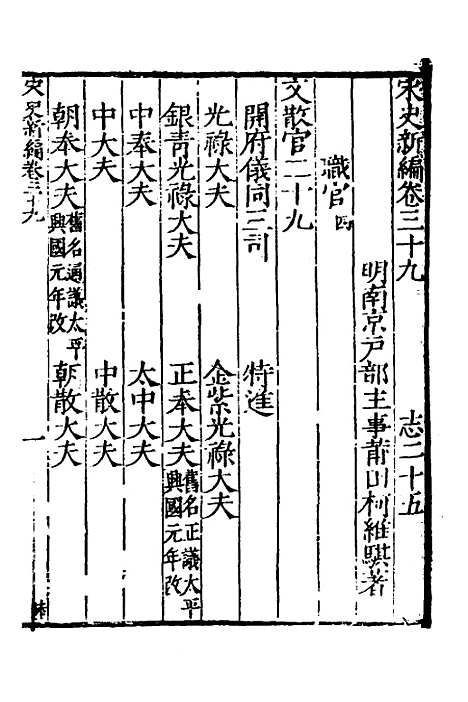 宋史新編卷三十九 志二十五
明南京戶部主事莆田柯維騏著
職官四
文散官二十九
開府儀同三司 特進
光祿大夫 金紫光祿大夫
銀青光祿大夫 正奉大夫舊名正議太平興國元年改
中奉大夫 太中大夫
中大夫 中散大夫
朝奉大夫舊名通議太平興國元年改 朝散大夫
宋史新編卷三十九 一